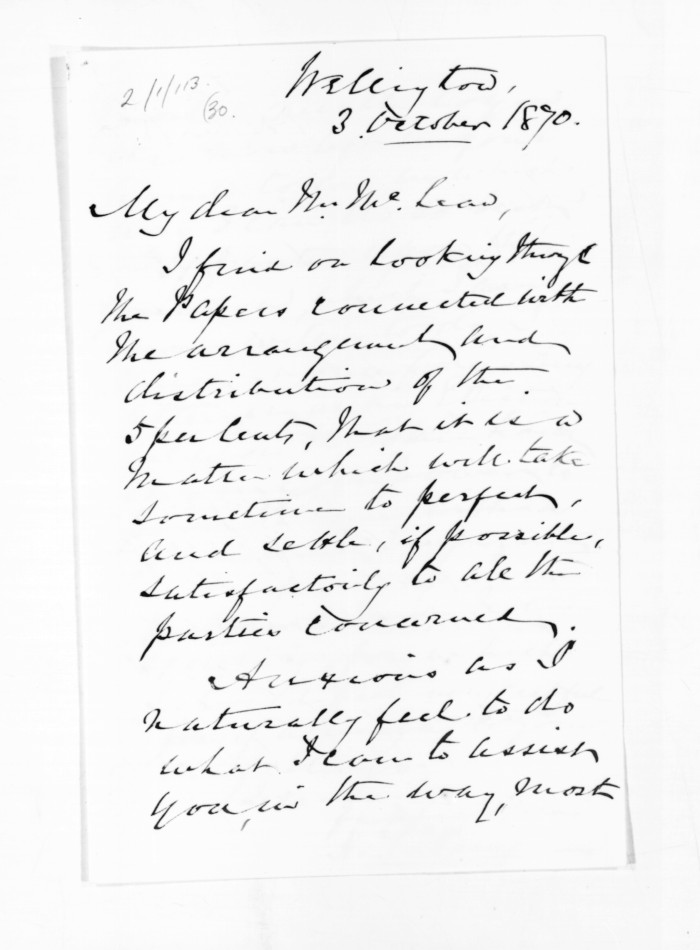 2/1/113
(30.
Wellington,
3 October 1870.
My dear Mr. McLean,
I find on looking through
the Papers connected with
the arrangement and
distribution of the
5 per Cents, that it is a
matter which will take
sometime to perfect,
and settle, if possible,
satisfactorily to all the
parties concerned.
Anxious as I
naturally feel to do
what I can to assist
you, in the way, most